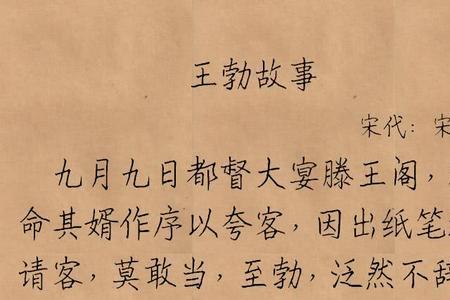 王勃故事
宋代：宋
九月九日都督大宴滕王阁，
命其婿作序以夸客，因出纸笔
请客，莫敢当，至勃，泛然不辞